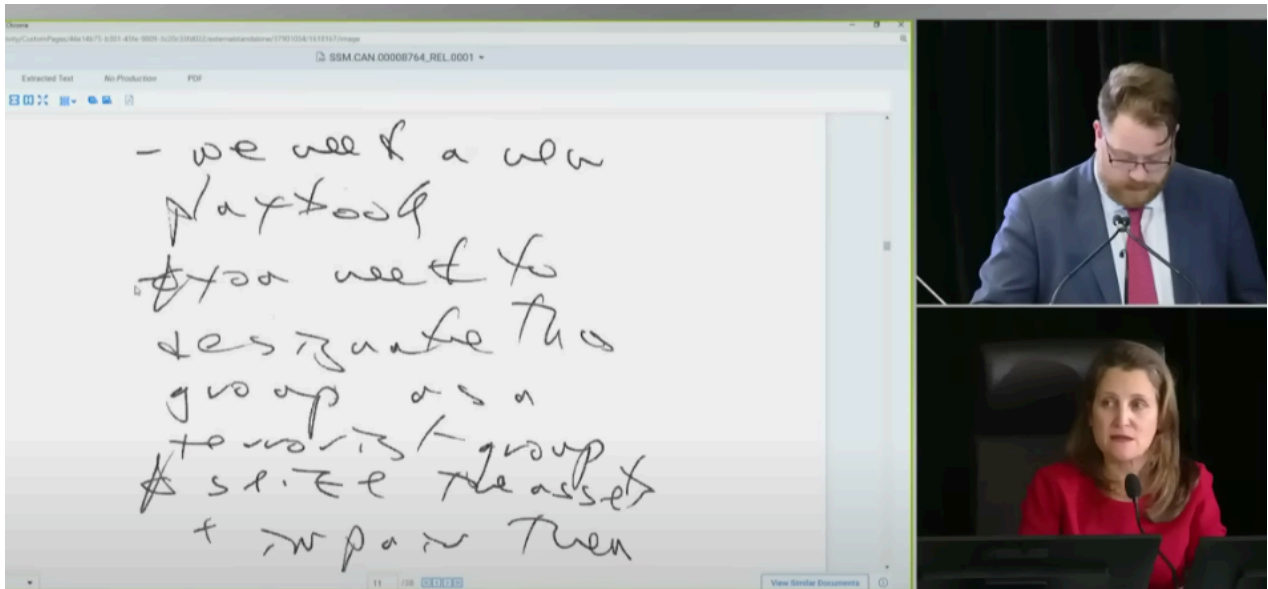 SSM.CAN.00008764_REL.0001
Extracted Text No Production PDF
- we need a new
playbook
you need to
designate the
group as a
terrorist group
seize the assets
+ impair them
11 /38
View Similar Documents